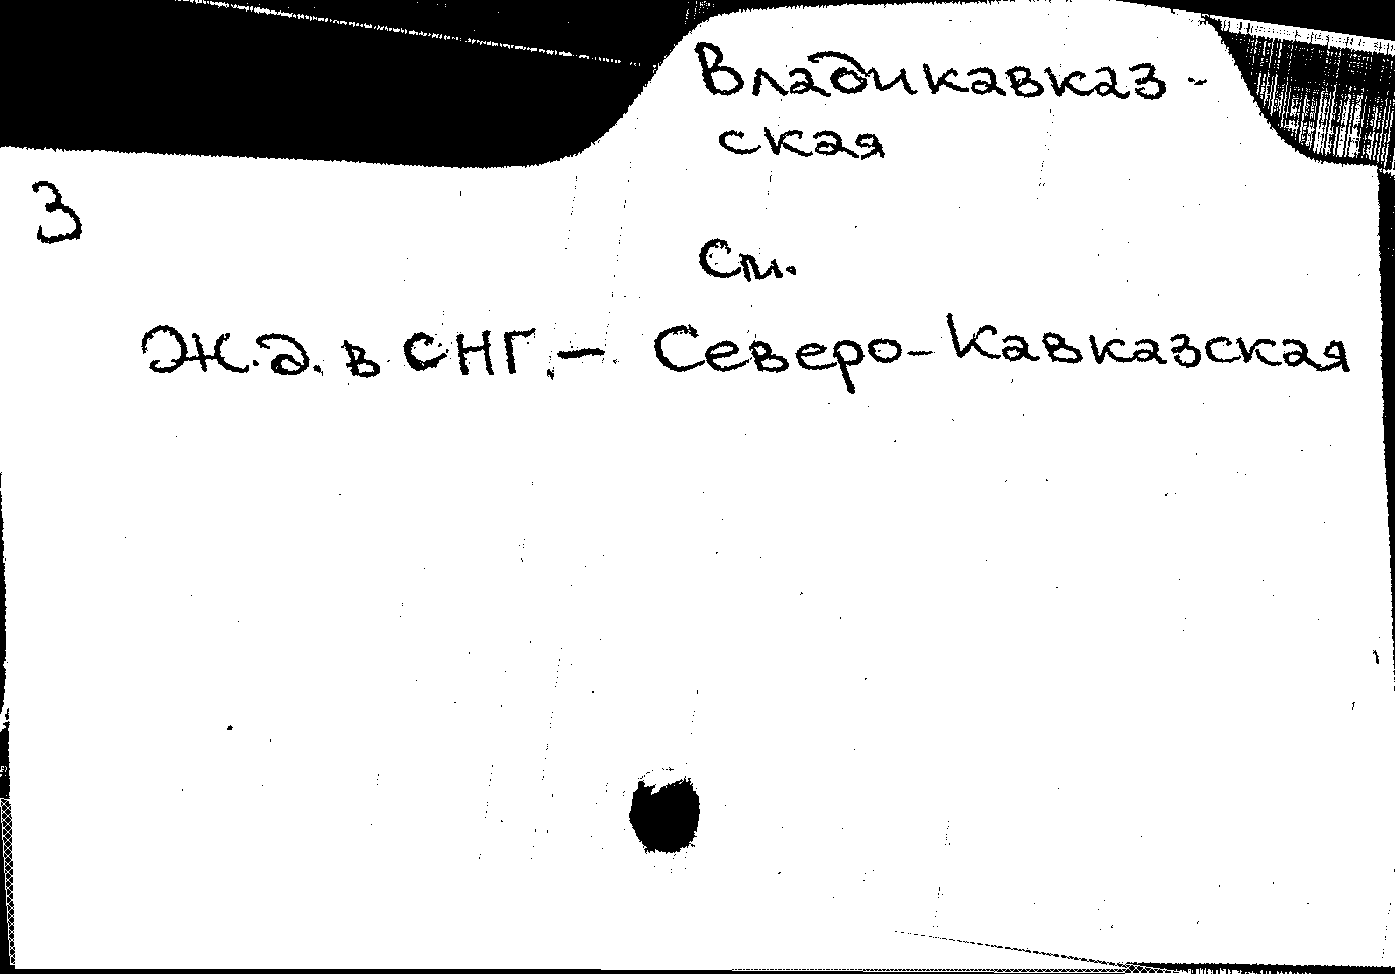 Владикавказ-
ская
3
См.
Ж.д. в СНГ. — Северо-Кавказская